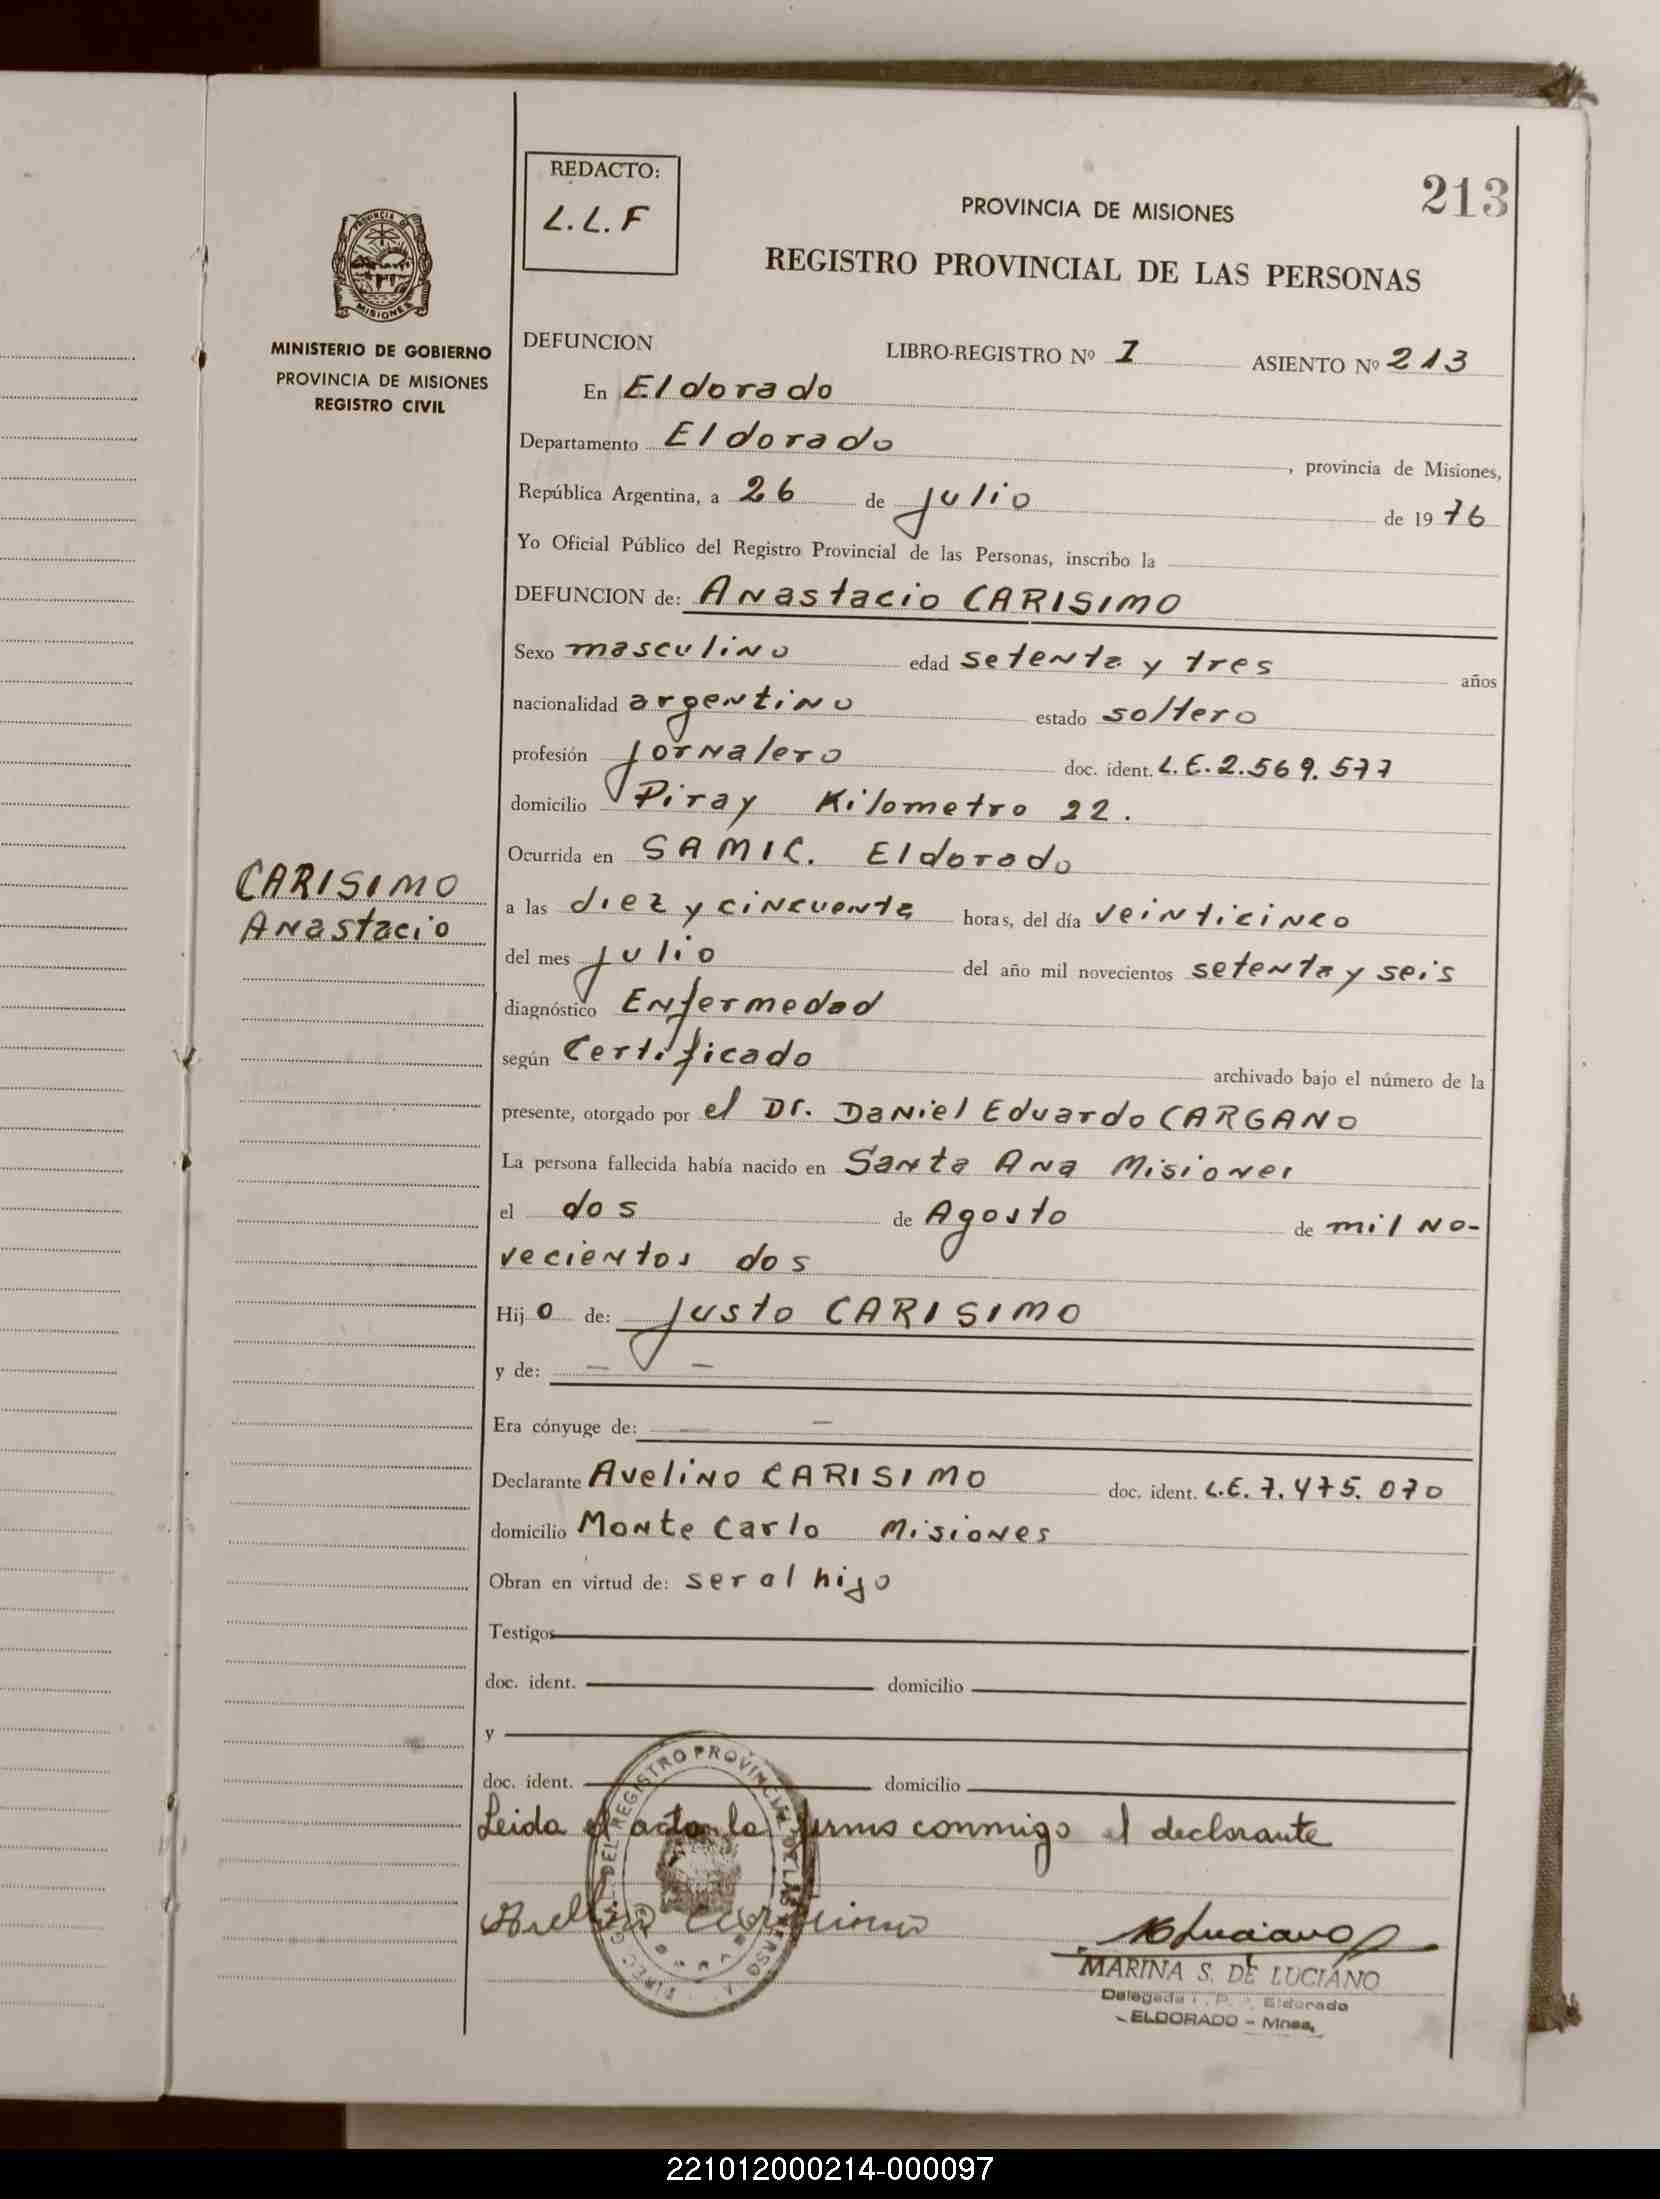 REDACTO:
L.L.F
213
PROVINCIA DE MISIONES
REGISTRO PROVINCIAL DE LAS PERSONAS
PROVINCIA DE
MISIONES
MINISTERIO DE GOBIERNO
PROVINCIA DE MISIONES
REGISTRO CIVIL
DEFUNCION LIBRO-REGISTRO Nº 1 ASIENTO Nº 213
En Eldorado
Departamento Eldorado, provincia de Misiones,
República Argentina, a 26 de julio de 1976
Yo Oficial Público del Registro Provincial de las Personas, inscribo la
DEFUNCION de: Anastacio CARISIMO
Sexo masculino edad setenta y tres años
nacionalidad argentino estado soltero
profesión jornalero doc. ident. L.E. 2.569.577
domicilio Piray Kilometro 22.
Ocurrida en SAMIC. Eldorado
CARISIMO
Anastacio
a las diez y cincuenta horas, del día veinticinco
del mes julio del año mil novecientos setenta y seis
diagnóstico Enfermedad
según Certificado archivado bajo el número de la
presente, otorgado por el Dr. Daniel Eduardo CARGANO
La persona fallecida había nacido en Santa Ana Misiones
el dos de Agosto de mil no-
vecientos dos
Hijo de: Justo CARISIMO
y de: — —
Era cónyuge de: — —
Declarante Avelino CARISIMO doc. ident. L.E. 7.475.070
domicilio Monte Carlo Misiones
Obran en virtud de: ser al hijo
Testigos
doc. ident. domicilio
y
doc. ident. domicilio
Leida el acta la firma conmigo el declarante
Avelino Carisimo
MARINA S. DE LUCIANO
Delegada R. P. P. Eldorado
ELDORADO - Mnes.
221012000214-000097